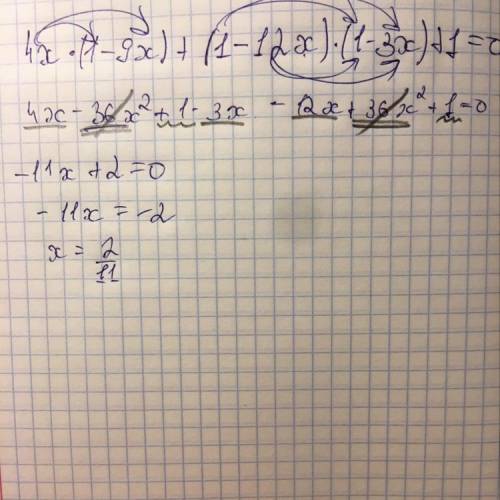 4x·(1-9x)+(1-12x)·(1-3x)+1=0
4x-36x²+1-3x-12x+36x²+1=0
-11x+2=0
-11x=-2
x=2/11